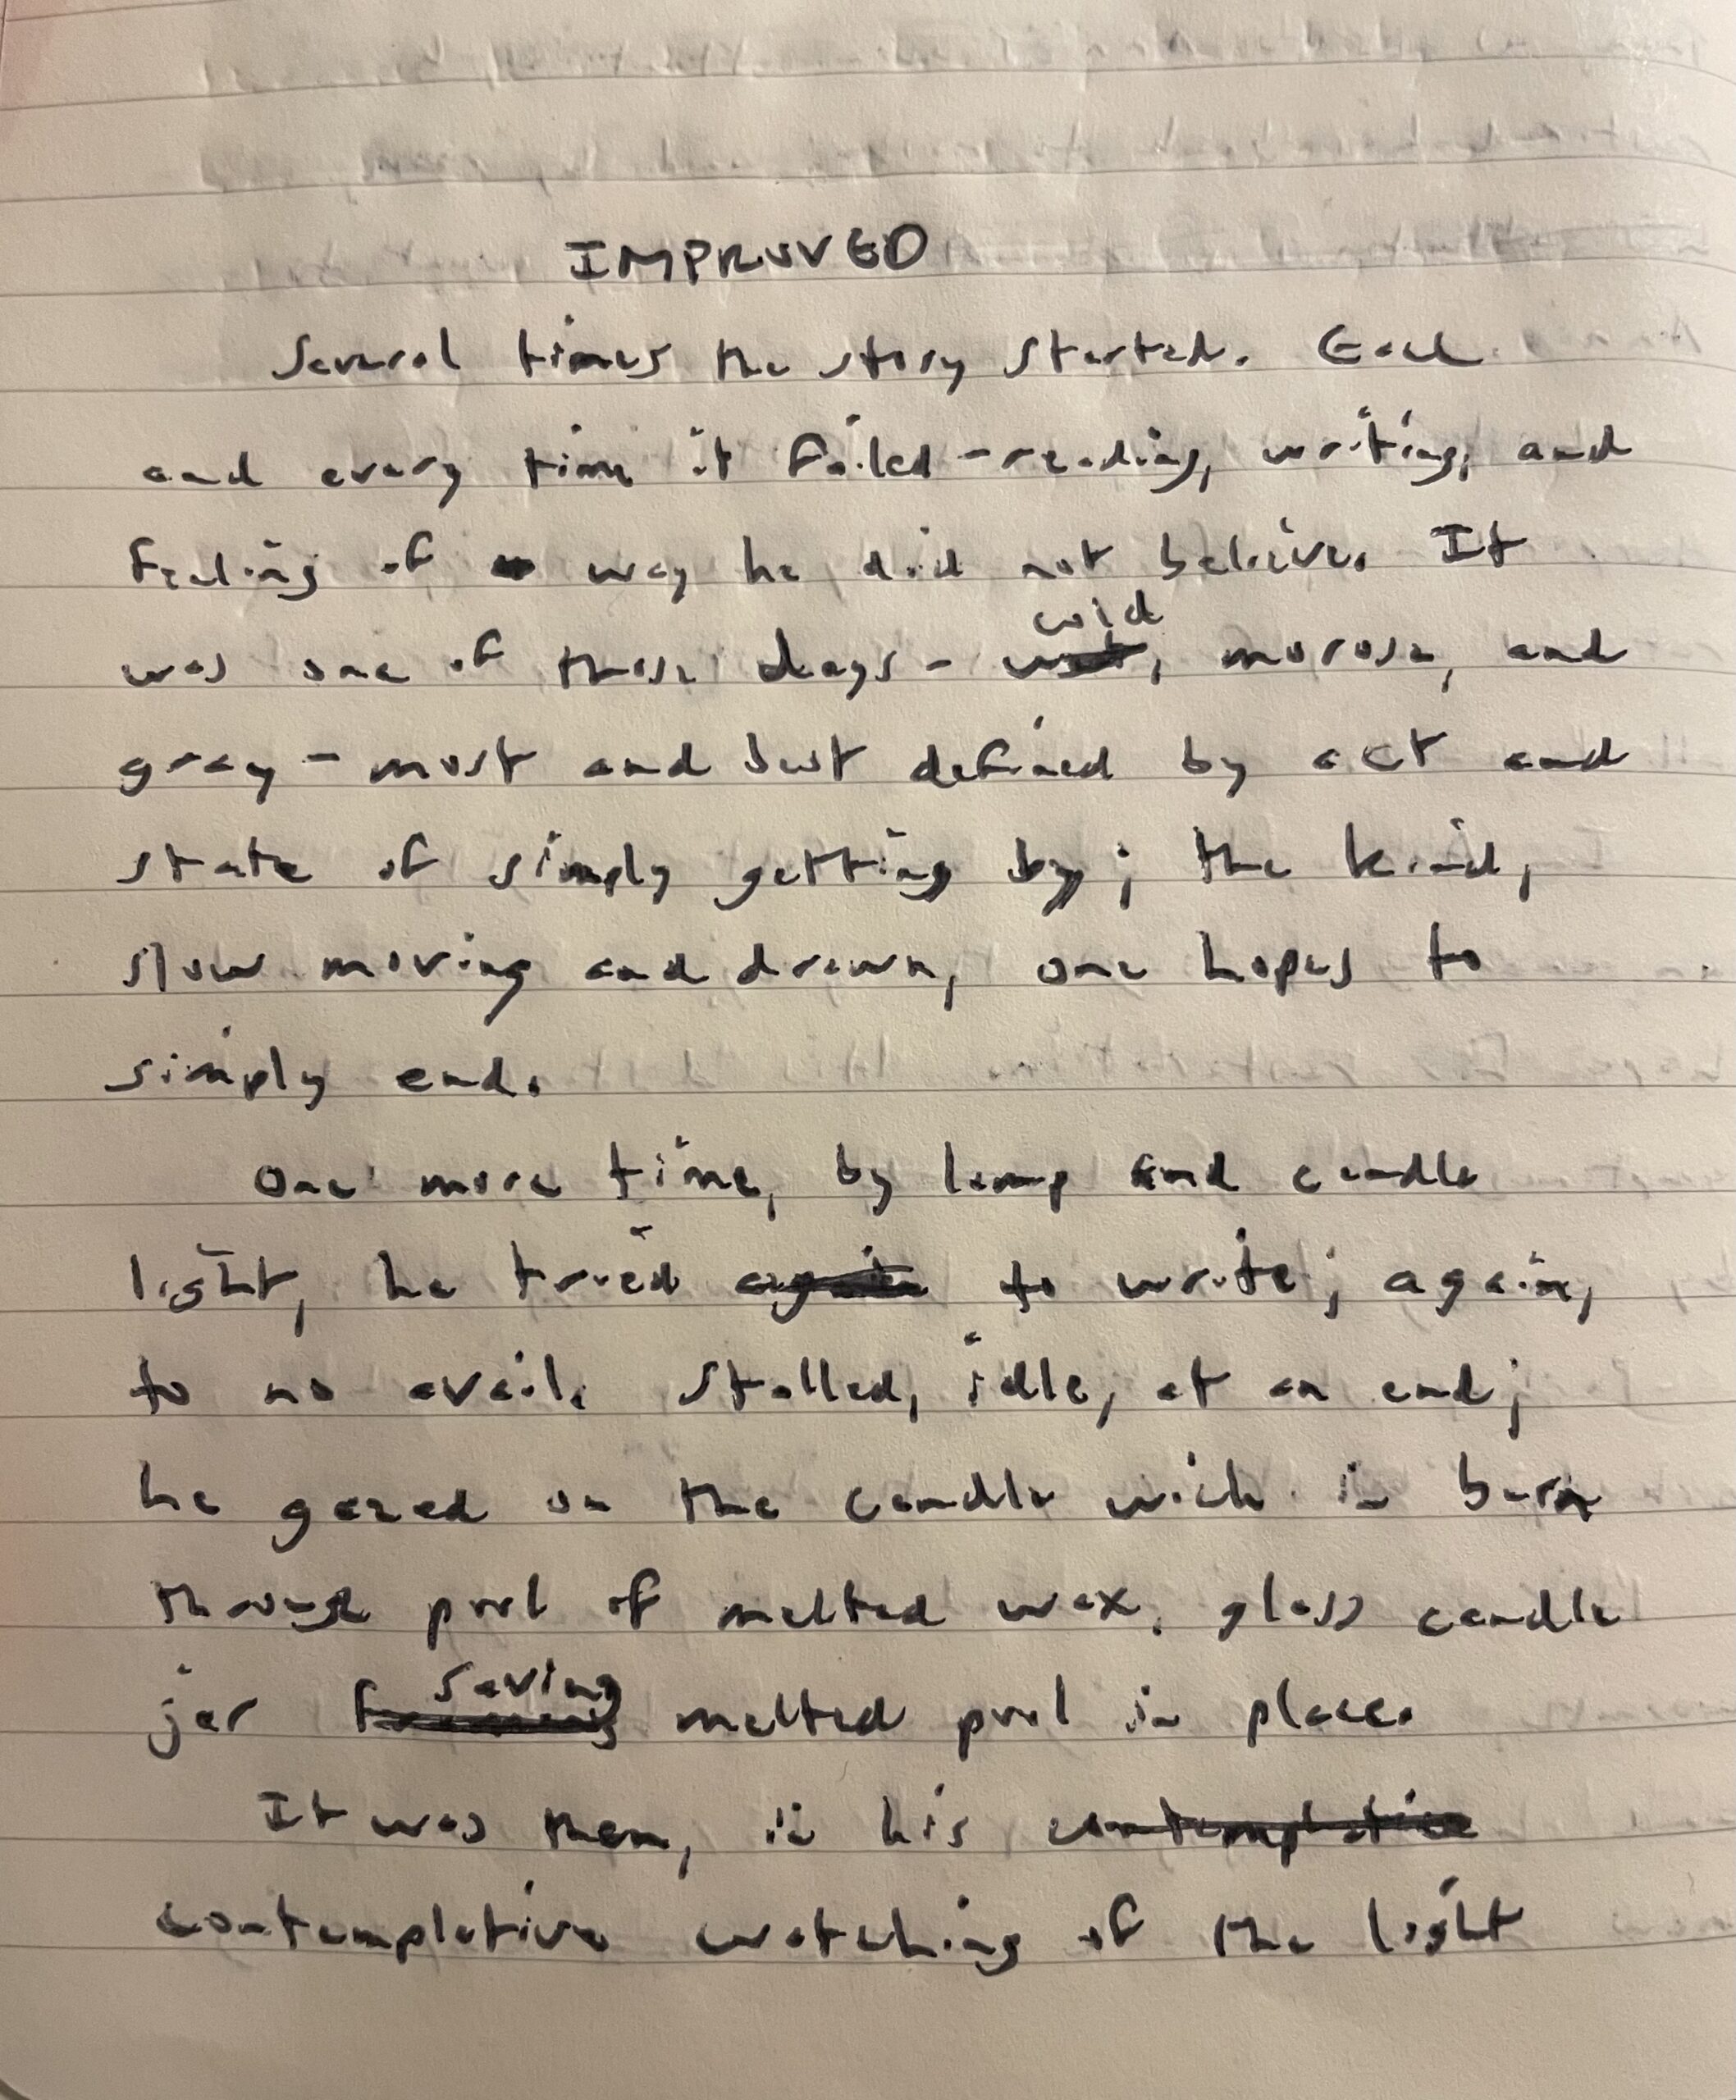 IMPROVED
Several times the story started. Each
and every time it failed - reading, writing, and
feeling of way he did not believe. It
was one of those days - cold, morose, and
gray - most and best defined by act and
state of simply getting by; the kind,
slow moving and drawn, one hopes to
simply end.
One more time, by lamp and candle
light, he tried again to write; again,
to no avail. Stalled, idle, at an end;
he gazed on the candle wick in burn
through pool of melted wax, glass candle
jar saving melted pool in place.
It was then, in his contemplative
contemplative watching of the light